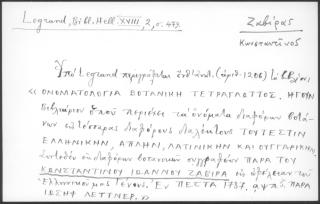 Legrand, Bibl. Hell. XVIII, 2, σ. 479.
Ζαβίρας
Κωνσταντῖνος
Ὑπὸ Legrand περιγράφεται ἐνθ' ἀνωτ. (ἀριθ. 1206)
« ΟΝΟΜΑΤΟΛΟΓΙΑ ΒΟΤΑΝΙΚΗ ΤΕΤΡΑΓΛΩΤΤΟΣ. ΗΓΟΥΝ
Βιβλιάριον ὁποῦ περιέχει τὰ ὀνόματα διαφόρων βοτά-
νων εἰς τέσσαρας διαφόρους διαλέκτους ΤΟΥΤΕΣΤΙΝ
ΕΛΛΗΝΙΚΗΝ, ΑΠΛΗΝ, ΛΑΤΙΝΙΚΗΝ ΚΑΙ ΟΥΓΓΑΡΙΚΗΝ.
Συντεθὲν ἐκ διαφόρων βοτανικῶν συγγραφέων ΠΑΡΑ ΤΟΥ
ΚΩΝΣΤΑΝΤΙΝΟΥ ΙΩΑΝΝΟΥ ΖΑΒΙΡΑ εἰς ὠφέλειαν τοῦ
Ἑλληνικοῦ μας Γένους. Ἐν ΠΕΣΤΑ 1787. ᾳψπζ. ΠΑΡΑ
ΙΩΣΗΦ ΛΕΤΤΝΕΡ. »